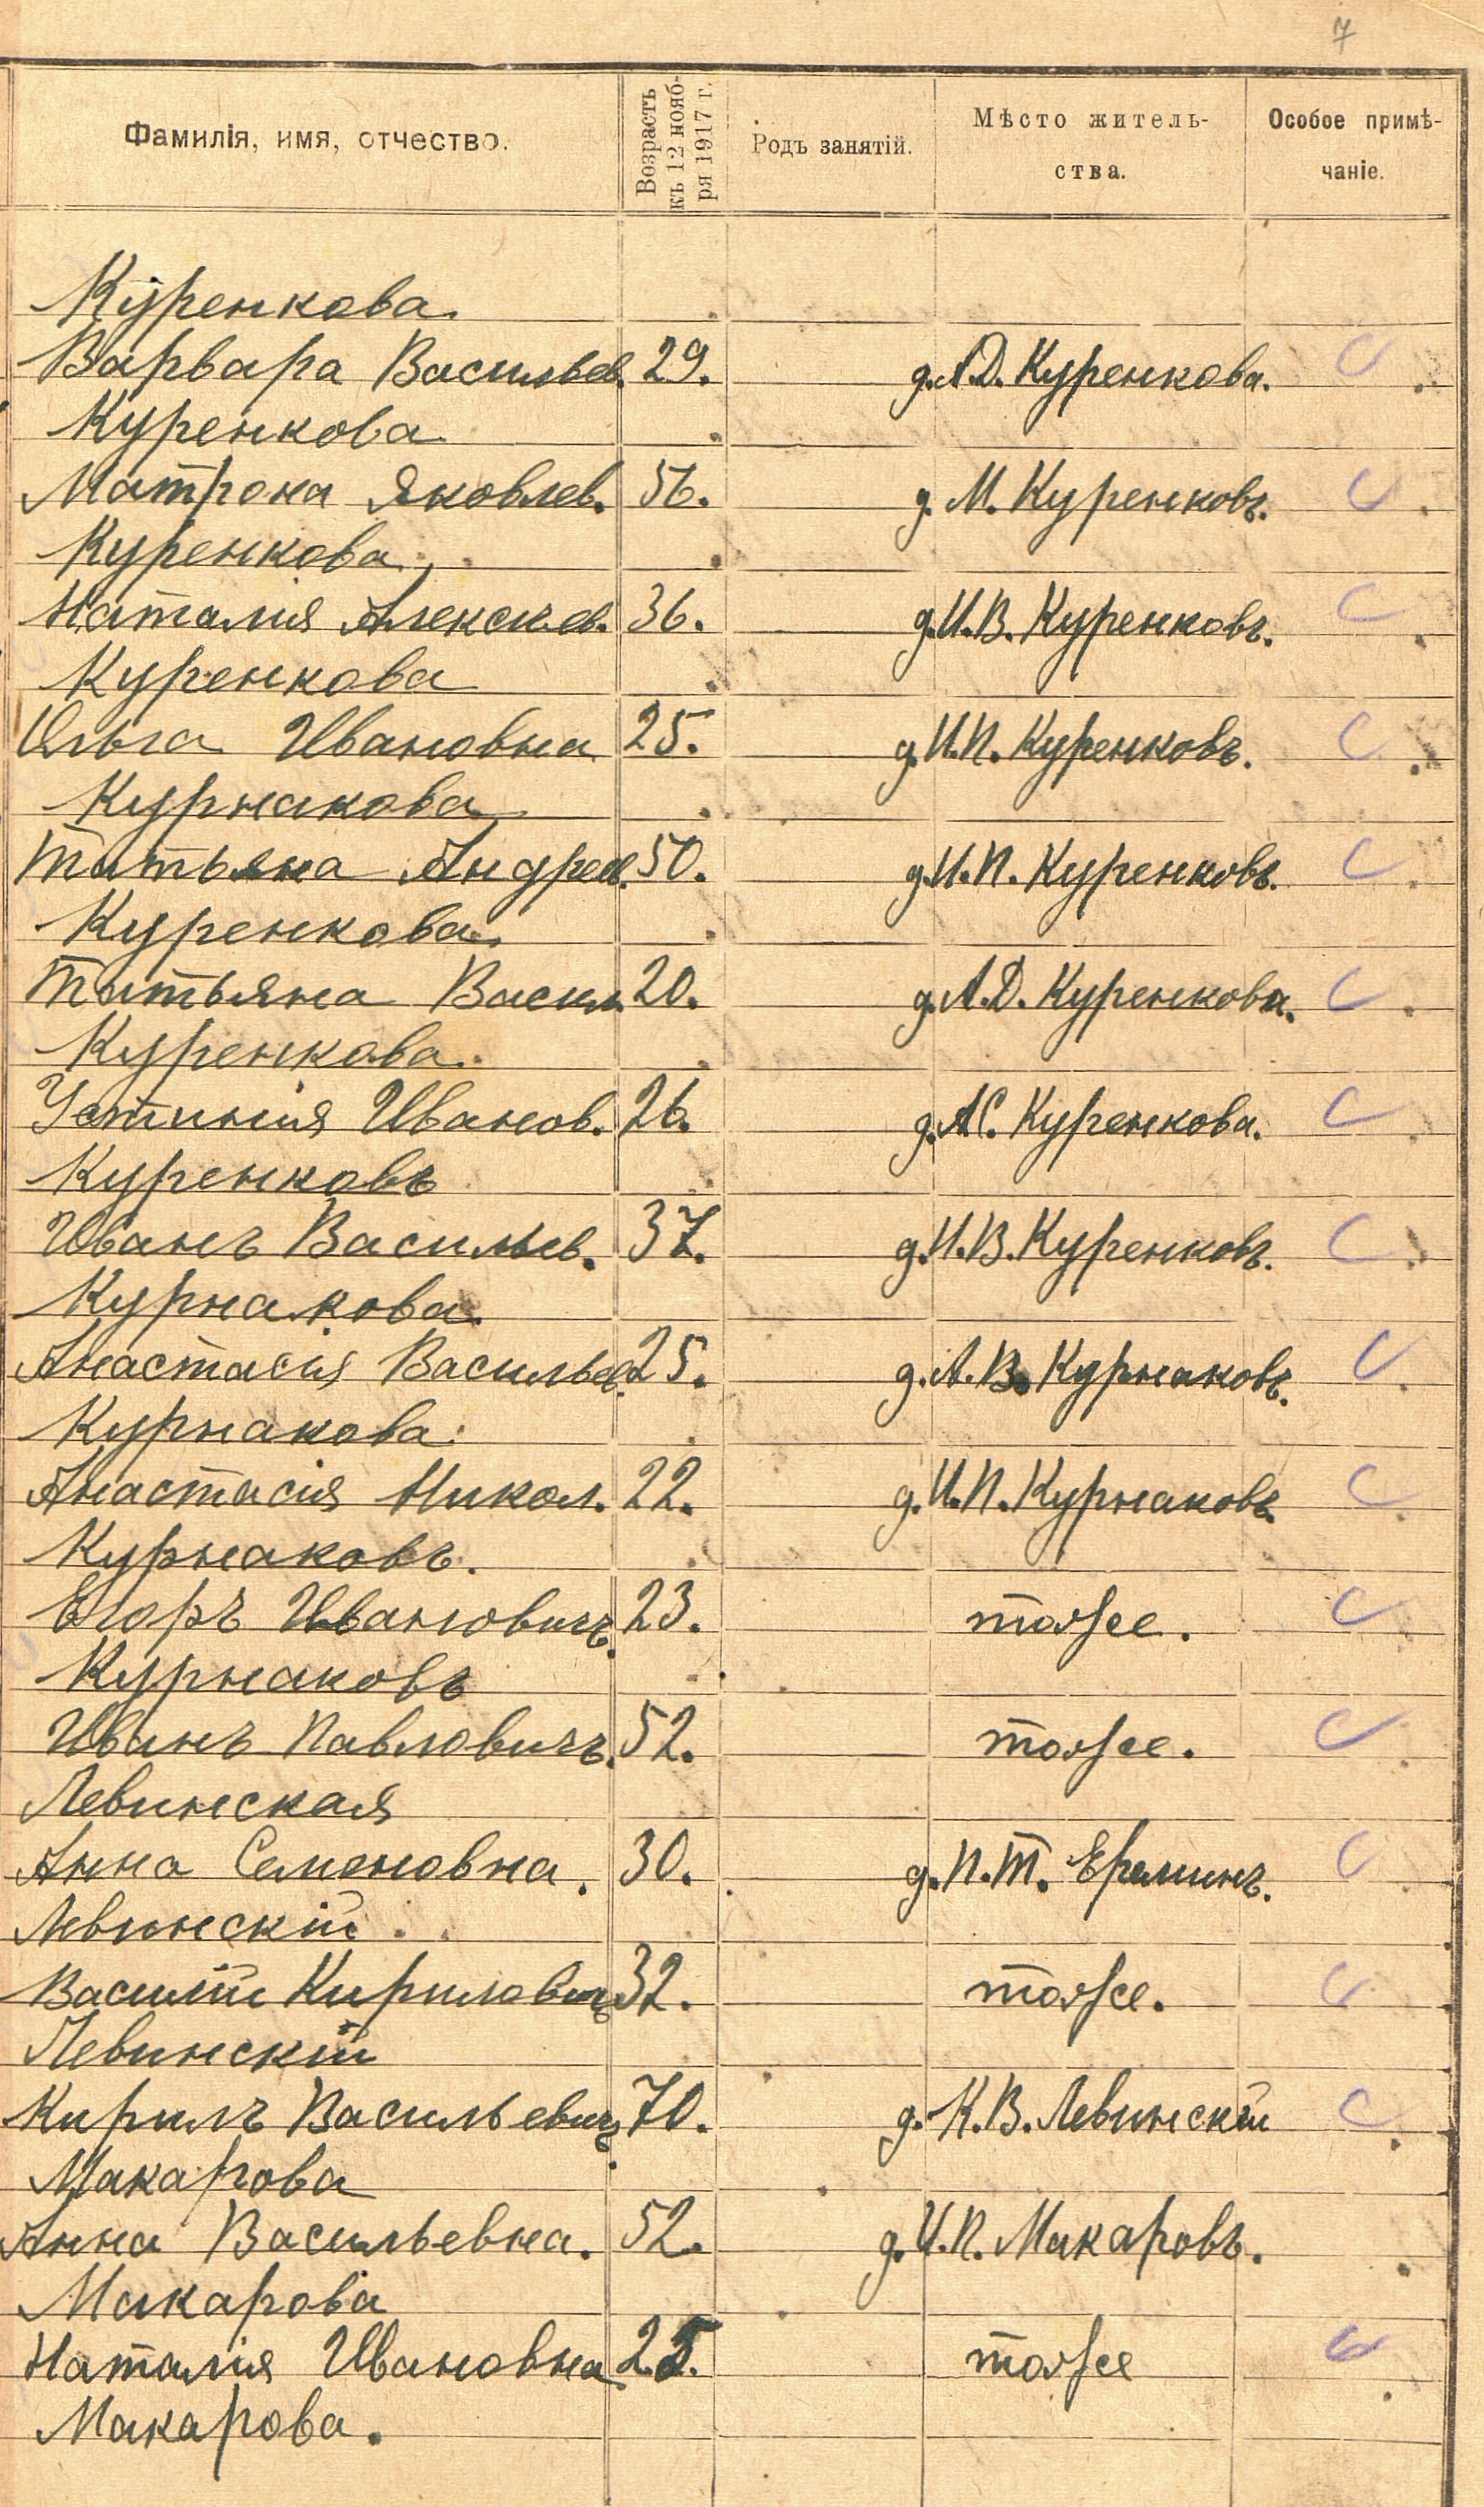 7
Фамилія, имя, отчество.
Возрастъ къ 12 нояб-
ря 1917 г.
Родъ занятій.
Мѣсто житель-
ства.
Особое примѣ-
чаніе.
Куренкова
Варвара Васильев. 29. д. А.Д. Куренкова.
Куренкова
Матрона Яковлев. 56. д. М. Куренковъ.
Куренкова
Наталія Алексѣев. 36. д. И.В. Куренковъ.
Куренкова
Ольга Ивановна 25. д. И.П. Куренковъ.
Курнакова
Татьяна Андреев. 50. д. И.П. Куренковъ.
Куренкова
Татьяна Васил. 20. д. А.Д. Куренкова.
Куренкова
Устинія Иванов. 26. д. А.С. Куренкова.
Куренковъ
Иванъ Васильев. 37. д. И.В. Куренковъ.
Курнакова
Анастасія Васильев. 25. д. А.В. Курнаковъ.
Курнакова
Анастасія Никол. 22. д. И.П. Курнаковъ
Курнаковъ.
Егоръ Ивановичъ. 23. тоже.
Курнаковъ
Иванъ Павловичъ. 52. тоже.
Левинская
Анна Семеновна. 30. д. П.Т. Ереминъ.
Левинскій
Василій Кириловичъ 32. тоже.
Левинскій
Кирилъ Васильевичъ 70. д. К.В. Левинскій
Макарова
Анна Васильевна. 52. д. И.П. Макаровъ.
Макарова
Наталія Ивановна 25. тоже
Макарова.